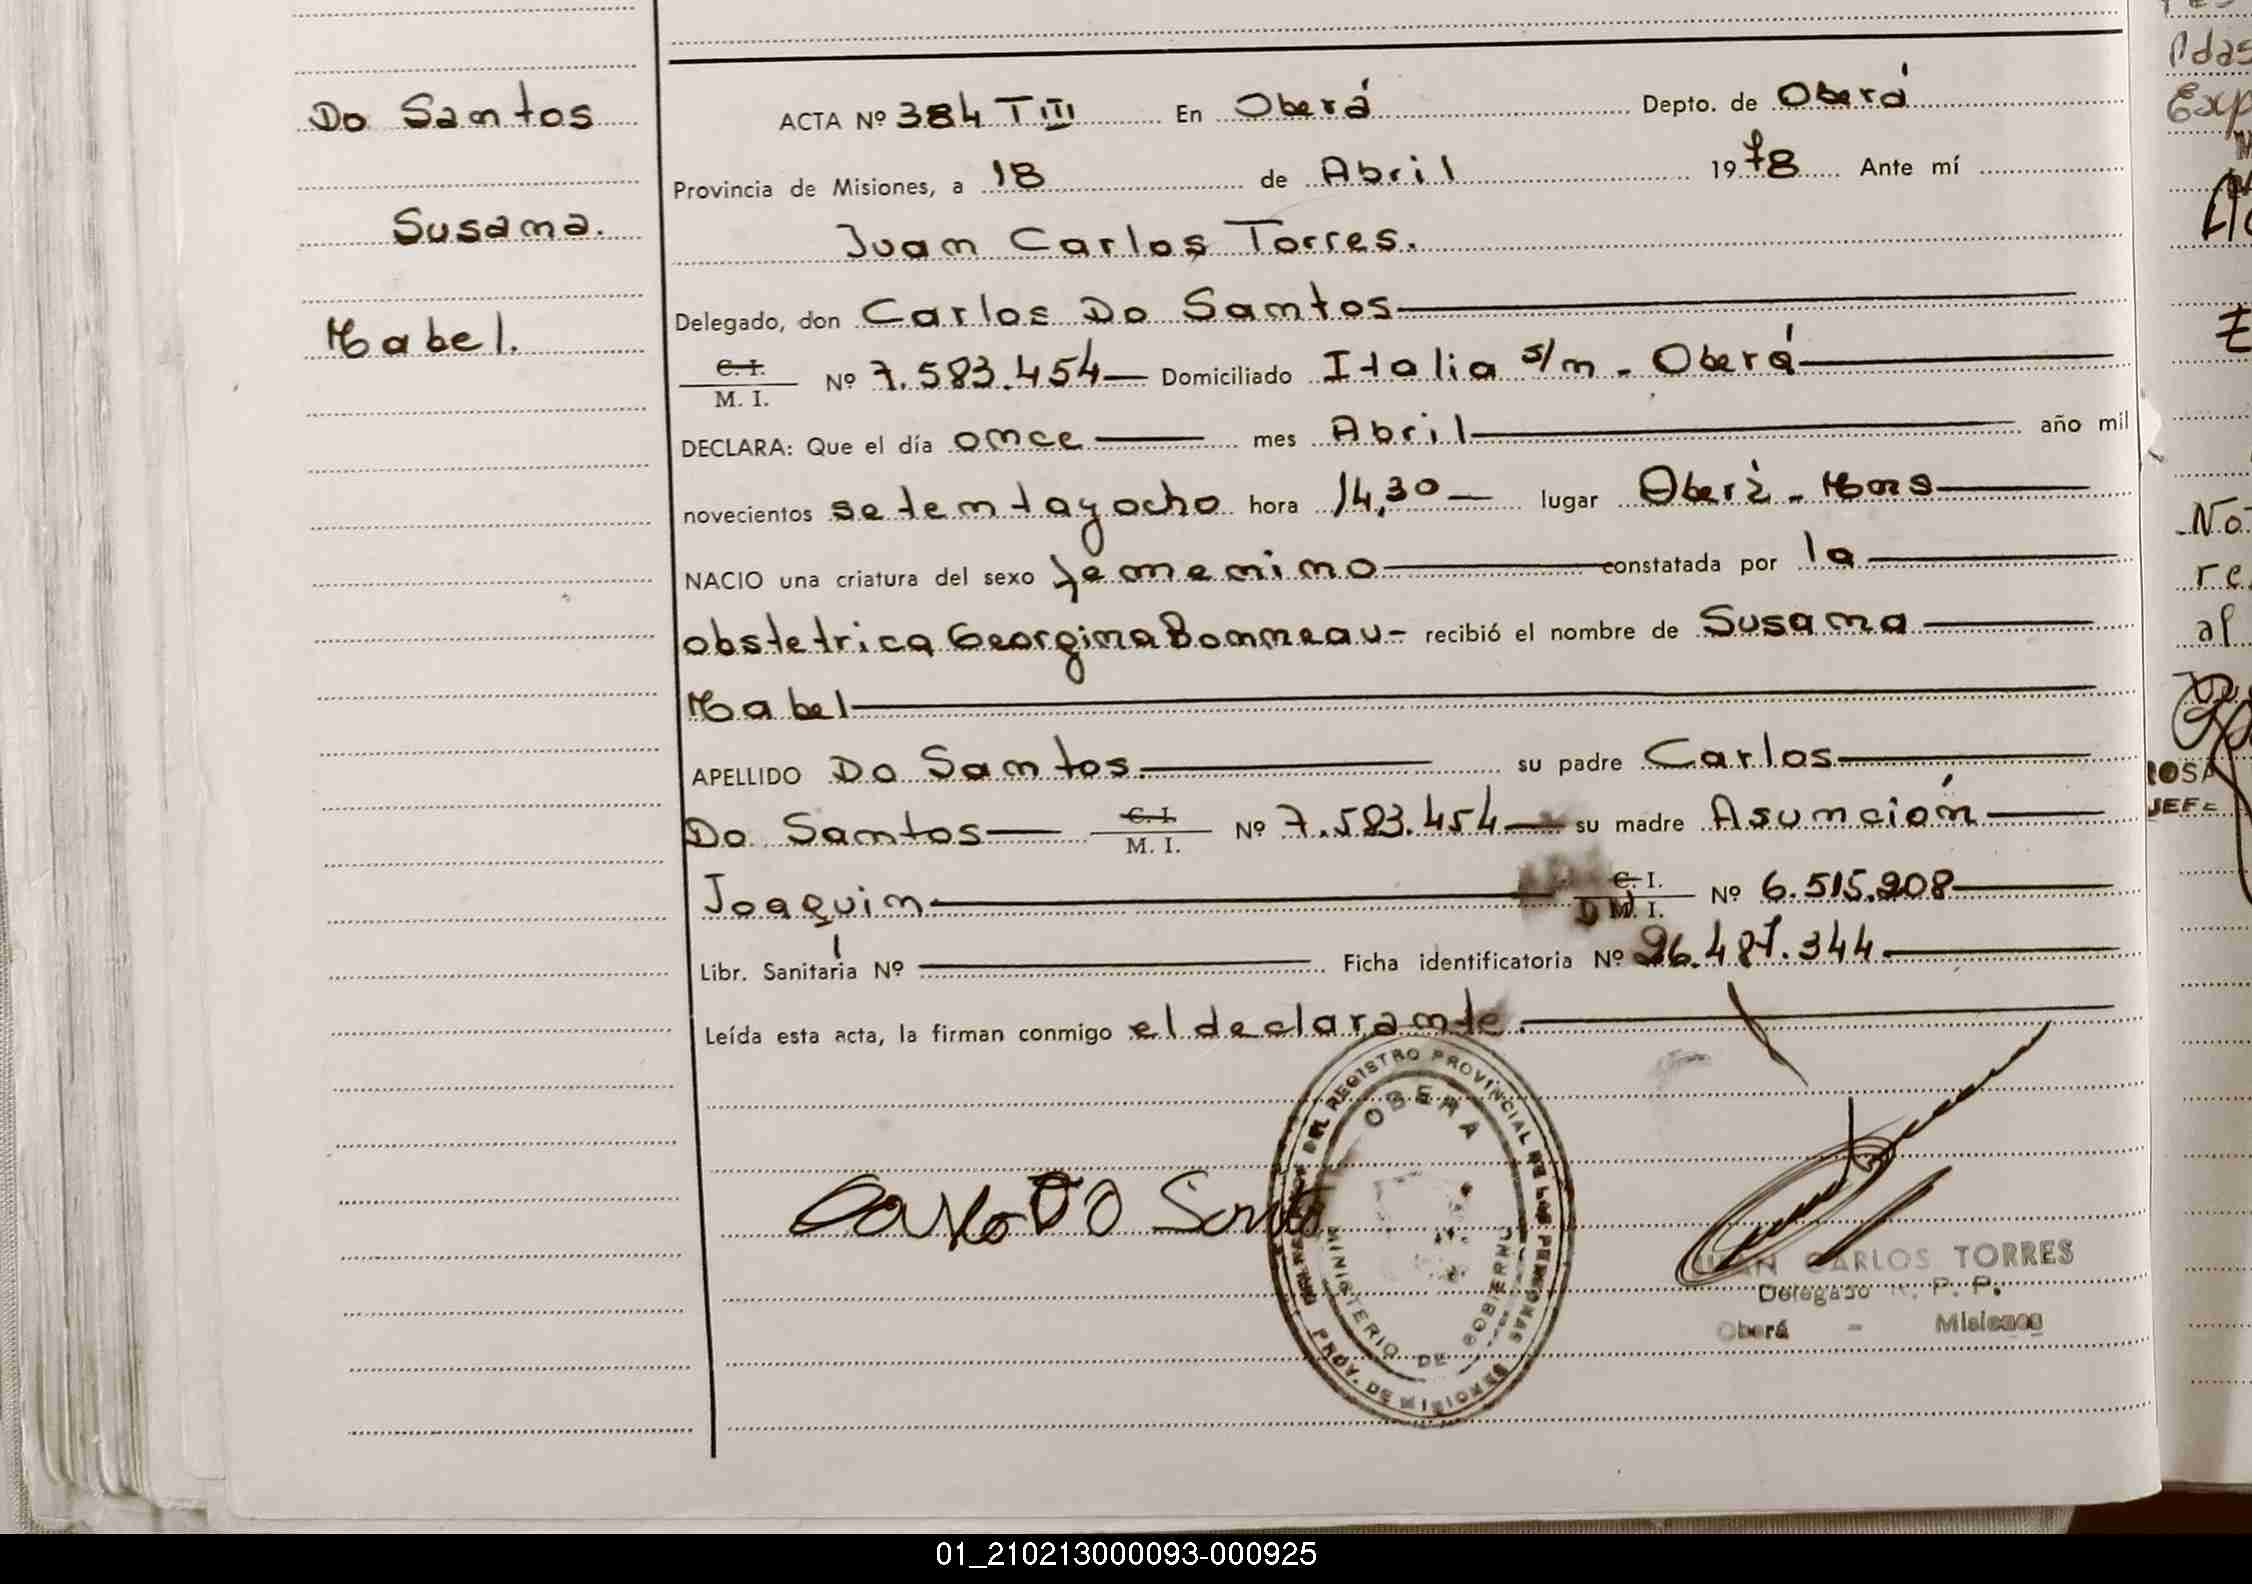 Do Santos
Susana.
Mabel.
ACTA Nº 384 TIII En Oberá Depto. de Oberá
Provincia de Misiones, a 18 de Abril 1978 Ante mí
Juan Carlos Torres.
Delegado, don Carlos Do Santos
C. I.
M. I. Nº 7.583.454 Domiciliado Italia s/n - Oberá
DECLARA: Que el día once mes Abril año mil
novecientos setentayocho hora 14,30 lugar Oberá - Mnes
NACIO una criatura del sexo femenino constatada por la
obstetrica Georgina Bonneau- recibió el nombre de Susana
Mabel
APELLIDO Do Santos. su padre Carlos
Do Santos C. I. M. I. Nº 7.583.454 su madre Asunción
Joaquin C. I. M. I. Nº 6.515.908
Libr. Sanitaria Nº Ficha identificatoria Nº 26.487.344
Leída esta acta, la firman conmigo el declarante.
DEL REGISTRO PROVINCIAL DE LAS PERSONAS
OBERA
MINISTERIO DE GOBIERNO
PROV. DE MISIONES
Carlos DO Santos
JUAN CARLOS TORRES
Delegado R. P. P.
Oberá - Misiones
ROSA
JEFE
01_210213000093-000925